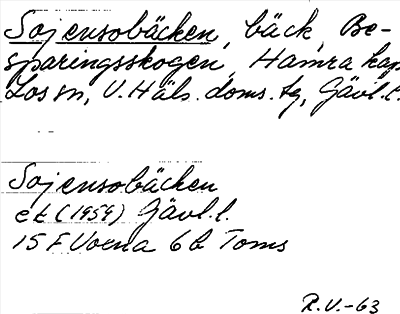 Sojensobäcken, bäck, Be-
sparingsskogen, Hamra kap
Los sn, V. Häls. doms. tg, Gävl. l.
Sojensobäcken
ek (1959) Gävl. l.
15 F Voxna 6 b Toms
R.V.-63